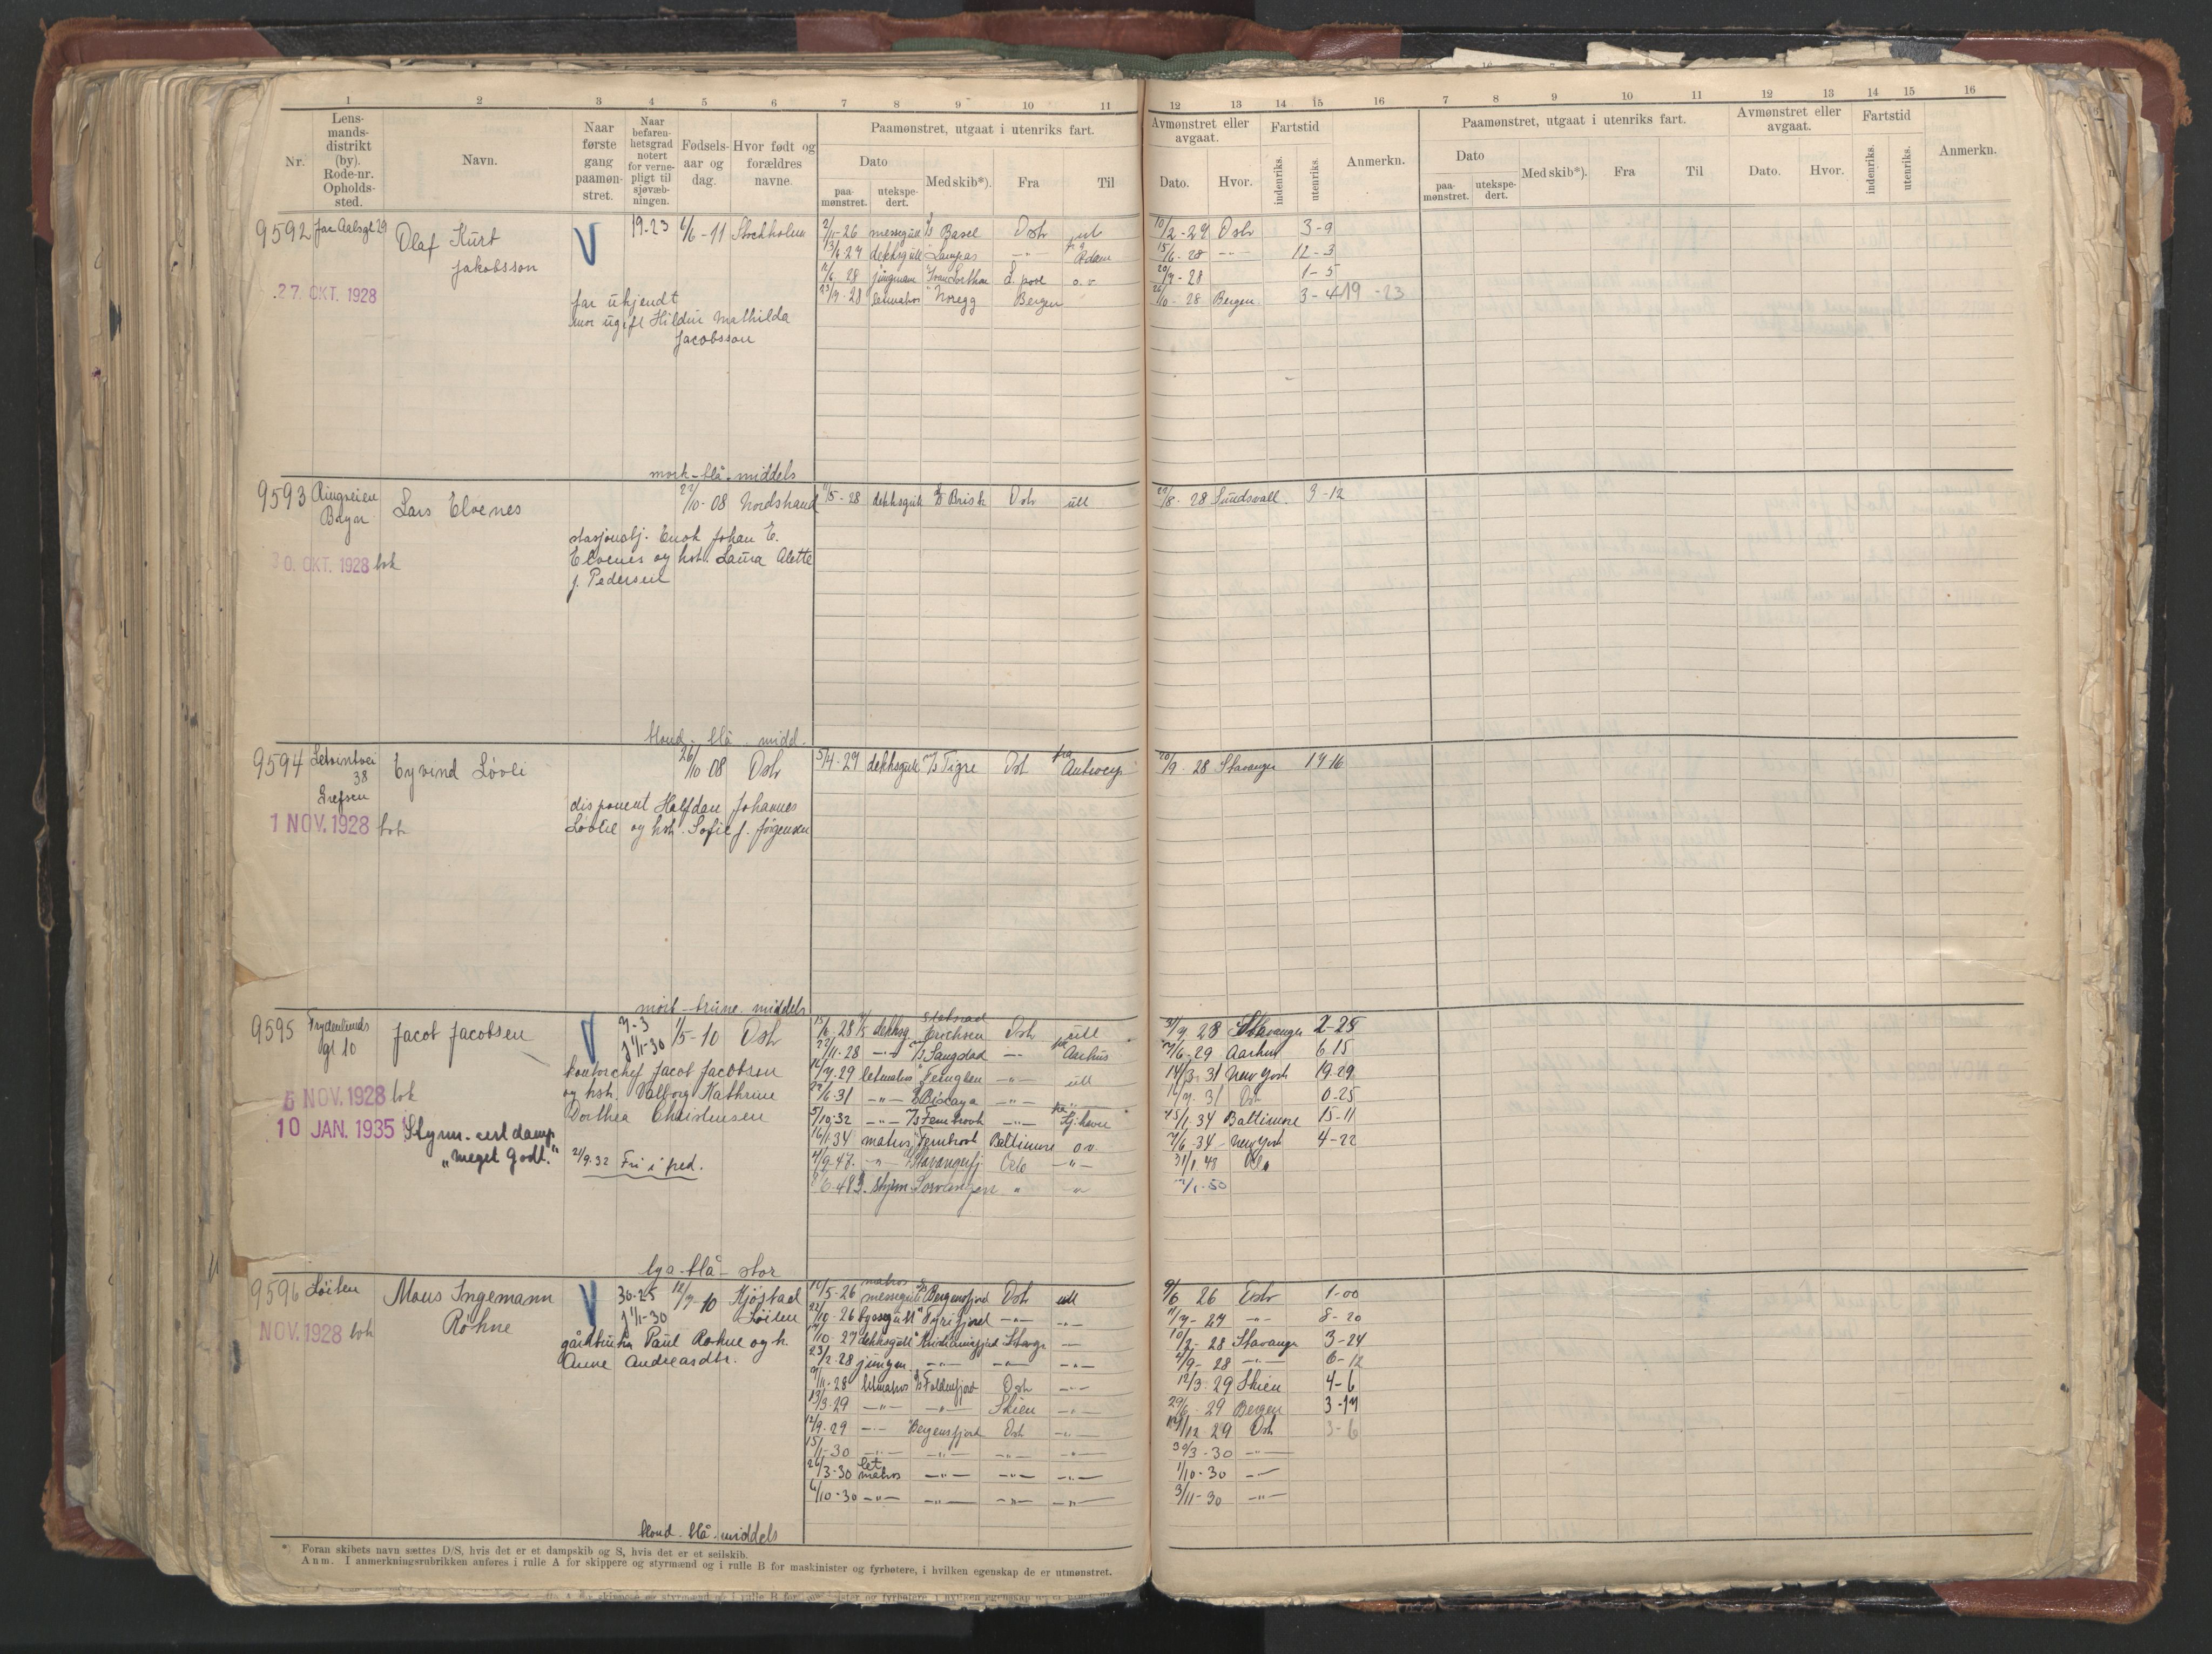 1 2 3 4 5 6 7 8 9 10 11 12 13 14 15 16 7 8 9 10 11 12 13 14 15 16
Nr. Lens-mands-distrikt (by). Rode-nr. Opholds-sted. Navn. Naar første gang paamøn-stret. Naar befaren-hetsgrad notert for verne-pligt til sjøvæb-ningen. Fødsels-aar og dag. Hvor født og forældres navne. Paamønstret, utgaat i utenriks fart. Avmønstret eller avgaat. Fartstid Anmerkn. Paamønstret, utgaat i utenriks fart. Avmønstret eller avgaat. Fartstid Anmerkn.
Dato paa-mønstret. utekspe-dert. Med skib*). Fra Til Dato. Hvor. indenriks. utenriks. Dato paa-mønstret. utekspe-dert. Med skib*). Fra Til Dato. Hvor. indenriks. utenriks.
9592 Jac Aalsgt 29 Olaf Kurt Jakobsson 19-23 6/6-11 Stockholm
27. OKT. 1928
far ukjendt
mor ugift Hildur Mathilda
Jacobsson
2/11-26 messegutt Basel Oslo 10/2-27 Oslo 3-9
13/6-27 dekksgutt fra Adam 15/6-28 -"- 12-3
28 jungman 20/9-28 1-5
23/9-28 letmatros " Noregg Bergen 10-28 Bergen 3-4 19-23
mork-blå-middels
9593 Ringveien Bryn Lars Elvenes 22/10-08 Nordstrand 5-28 dekksgutt Brisk Oslo utl 29/8-28 Sundsvall. 3-12
30. OKT. 1928 bok
stasjonsbtj. Enok Johan E.
Elvenes og hst. Laura Alette
f. Pedersen
blond-blå-midd.
9594 38 Grefsen Eyvind Lövli 26/10 08 Oslo 5/4-27 dekksgutt M/S Tigre Osl fra Antwerp 20/9-28 Stavanger 17 16
1 NOV. 1928 bok
disponent Halfdan Johannes
Lövlie og hst. Sofie f. Jörgensen
mörk-brune-middels
9595 Frydenlunds gt 10 Jacob Jacobsen 7-3 f 1/1-30 1/5-10 Oslo
5 NOV. 1928 bok
10 JAN. 1935 Styrm. cert damp.
"meget godt."
kontorchef Jacob Jacobsen
og hst. Valborg Kathrine
Dorthea Christensen
2/9.32 Fri i fred.
15/6-28 dekksg Erichsen Oslo utl 28 Stavanger 2-25
22/11-28 -"- Sangstad -"- fra Aarhus 7/6-29 Aarhus 6 15
29 letmatros " Fernglen -"- utl 14/3-31 New York 19-29
6-31 -"- Biscaya -"- 31 Osl 0-25
5/10.32 -"- M/S Fernbrook -"- fra Kj.havn 15/1-34 Baltimore 15-11
16/1.34 matros Fernbrook Baltimore o.v. 7/6-34 New York 4-22
4/9-47. -"- Stavangerfj Oslo -"- 31/1 48 Oslo
6.48 styrm. " " 1-50
lys-blå-stor
9596 Löiten Mons Ingemann Rohne 30-25 f 1/1-30 12/7-10 Kjöstad Löiten
NOV. 1928 bok
gårdbruker Paul Rohne og h.
Anne Andreasdtr.
5-26 matros messegutt Bergensfjord Oslo utl 9/6 26 Oslo 1-00
22/10-26 byssegutt " Tyrifjord -"- -"- 27 -"- 8-20
10-27 dekksgutt " Kristianiafjord Stavgr -"- 10/2-28 Stavanger 3-24
23/2-28 jungm. -"- -"- -"- 4/9-28 -"- 6-12
11-28 letmatros Foldenfjord Oslo -"- 12/3.29 Skien 4-6
13/3.29 -"- -"- Skien -"- 29/6-29 Bergen 3-17
12/9-29 -"- Bergensfjord Oslo -"- 12-29 Osl 3-6
15/1-30 -"- -"- -"- -"- 30/3-30 -"-
26/3-30 let matros -"- -"- -"- 1/10-30 -"-
4/10-30 -"- -"- -"- -"- 3/11-30 -"-
blond-blå-middels
*) Foran skibets navn sættes D/S, hvis det er et dampskib og S, hvis det er et seilskib.
Anm. I anmerkningsrubrikken anføres i rulle A for skippere og styrmænd og i rulle B for maskinister og fyrbøtere, i hvilken egenskap de er utmønstret.